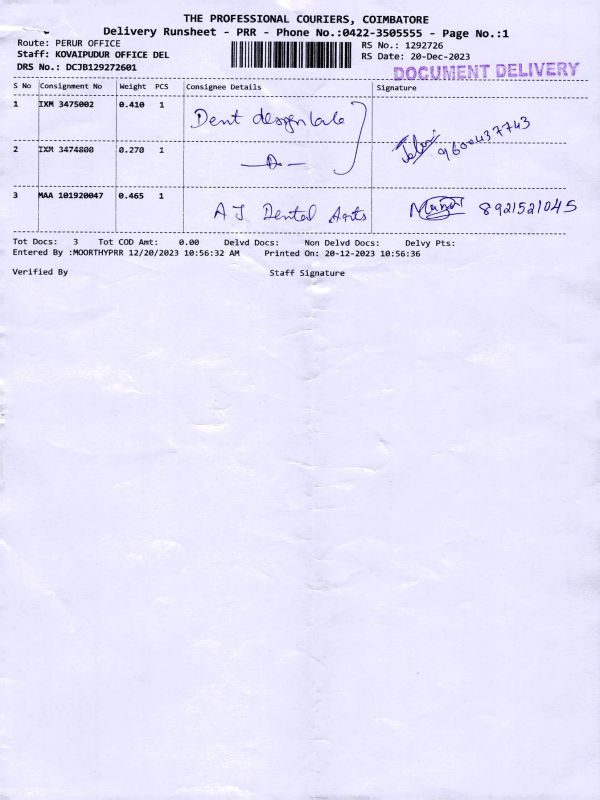 THE PROFESSIONAL COURIERS, COIMBATORE
Delivery Runsheet - PRR - Phone No.:0422-3505555 - Page No.:1
Route: PERUR OFFICE
RS No.: 1292726
Staff: KOVAIPUDUR OFFICE DEL
RS Date: 20-Dec-2023
DRS No.: DCJB129272601
DOCUMENT DELIVERY
S No Consignment No Weight PCS Consignee Details Signature
1 IXM 3475002 0.410 1 Dent
2 IXM 3474800 0.270 1 9600437743
3 MAA 101920047 0.465 1 A J Dental Arts 8921521045
Tot Docs: 3 Tot COD Amt: 0.00 Delvd Docs: Non Delvd Docs: Delvy Pts:
Entered By :MOORTHYPRR 12/20/2023 10:56:32 AM Printed On: 20-12-2023 10:56:36
Verified By Staff Signature